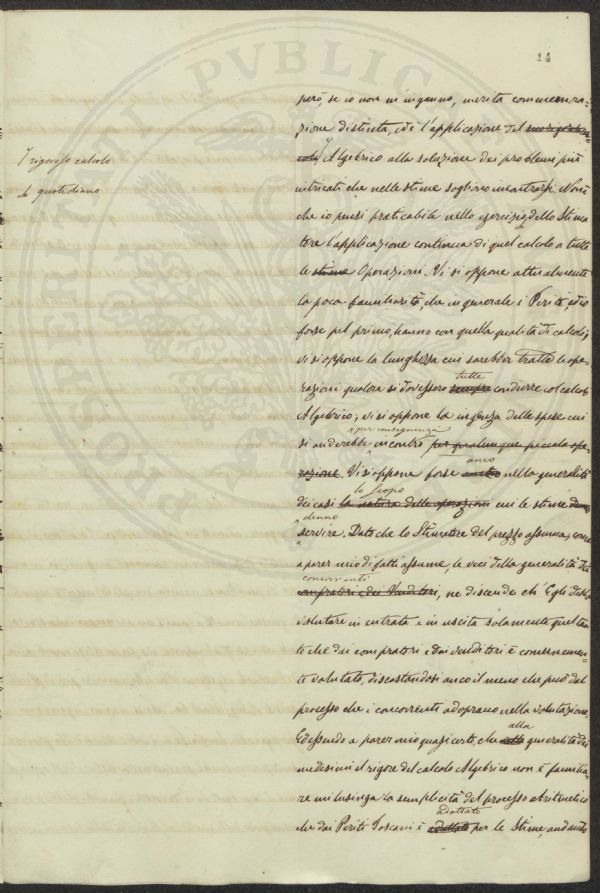 14
però, se io non m'inganno, merita commemora-
zione distinta, ed è l'applicazione del
Algebrico alla soluzione dei problemi più
rigoroso calcolo
intricati che nelle stime sogliono incontrarsi. Non è
quotidiano
che io pensi praticabile nello esercizio dello Stima
tore l'applicazione continua di quel calcolo a tutte
le stime Operazioni. Vi si oppone attualmente
la poca familiarità, che in generale i Periti, ed io
forse pel primo, hanno con quella qualità di calcoli;
vi si oppone la lunghezza cui sarebber tratte le ope-
razioni qualora si dovessero sempre condurre col calcolo
tutte
Algebrico; vi si oppone la ingenza delle spese cui
per conseguenza
si anderebbe incontro per qualunque piccola ope-
razione. Vi si oppone forse nella generalità
anco
dei casi la natura delle operazioni cui le stime
lo scopo
denno
servire. Dato che lo Stimatore del prezzo assuma, come
a parer mio di fatti assume, le veci della generalità dei
concorrenti
compratori e dei Venditori, ne discende ch'Egli debba
valutare in entrata e in uscita solamente quel tan
to che dai compratori e dai venditori è comunemen-
te valutato, discostandosi anco il meno che può dal
processo che i concorrenti adoprano nella valutazione.
Ed essendo a parer mio quasi certo, che generalità dei
alla
medesimi il rigore del calcolo Algebrico non è familia-
re mi lusinga la semplicità del processo Aritmetico
adottato
che dai Periti Toscani è per le Stime, andando